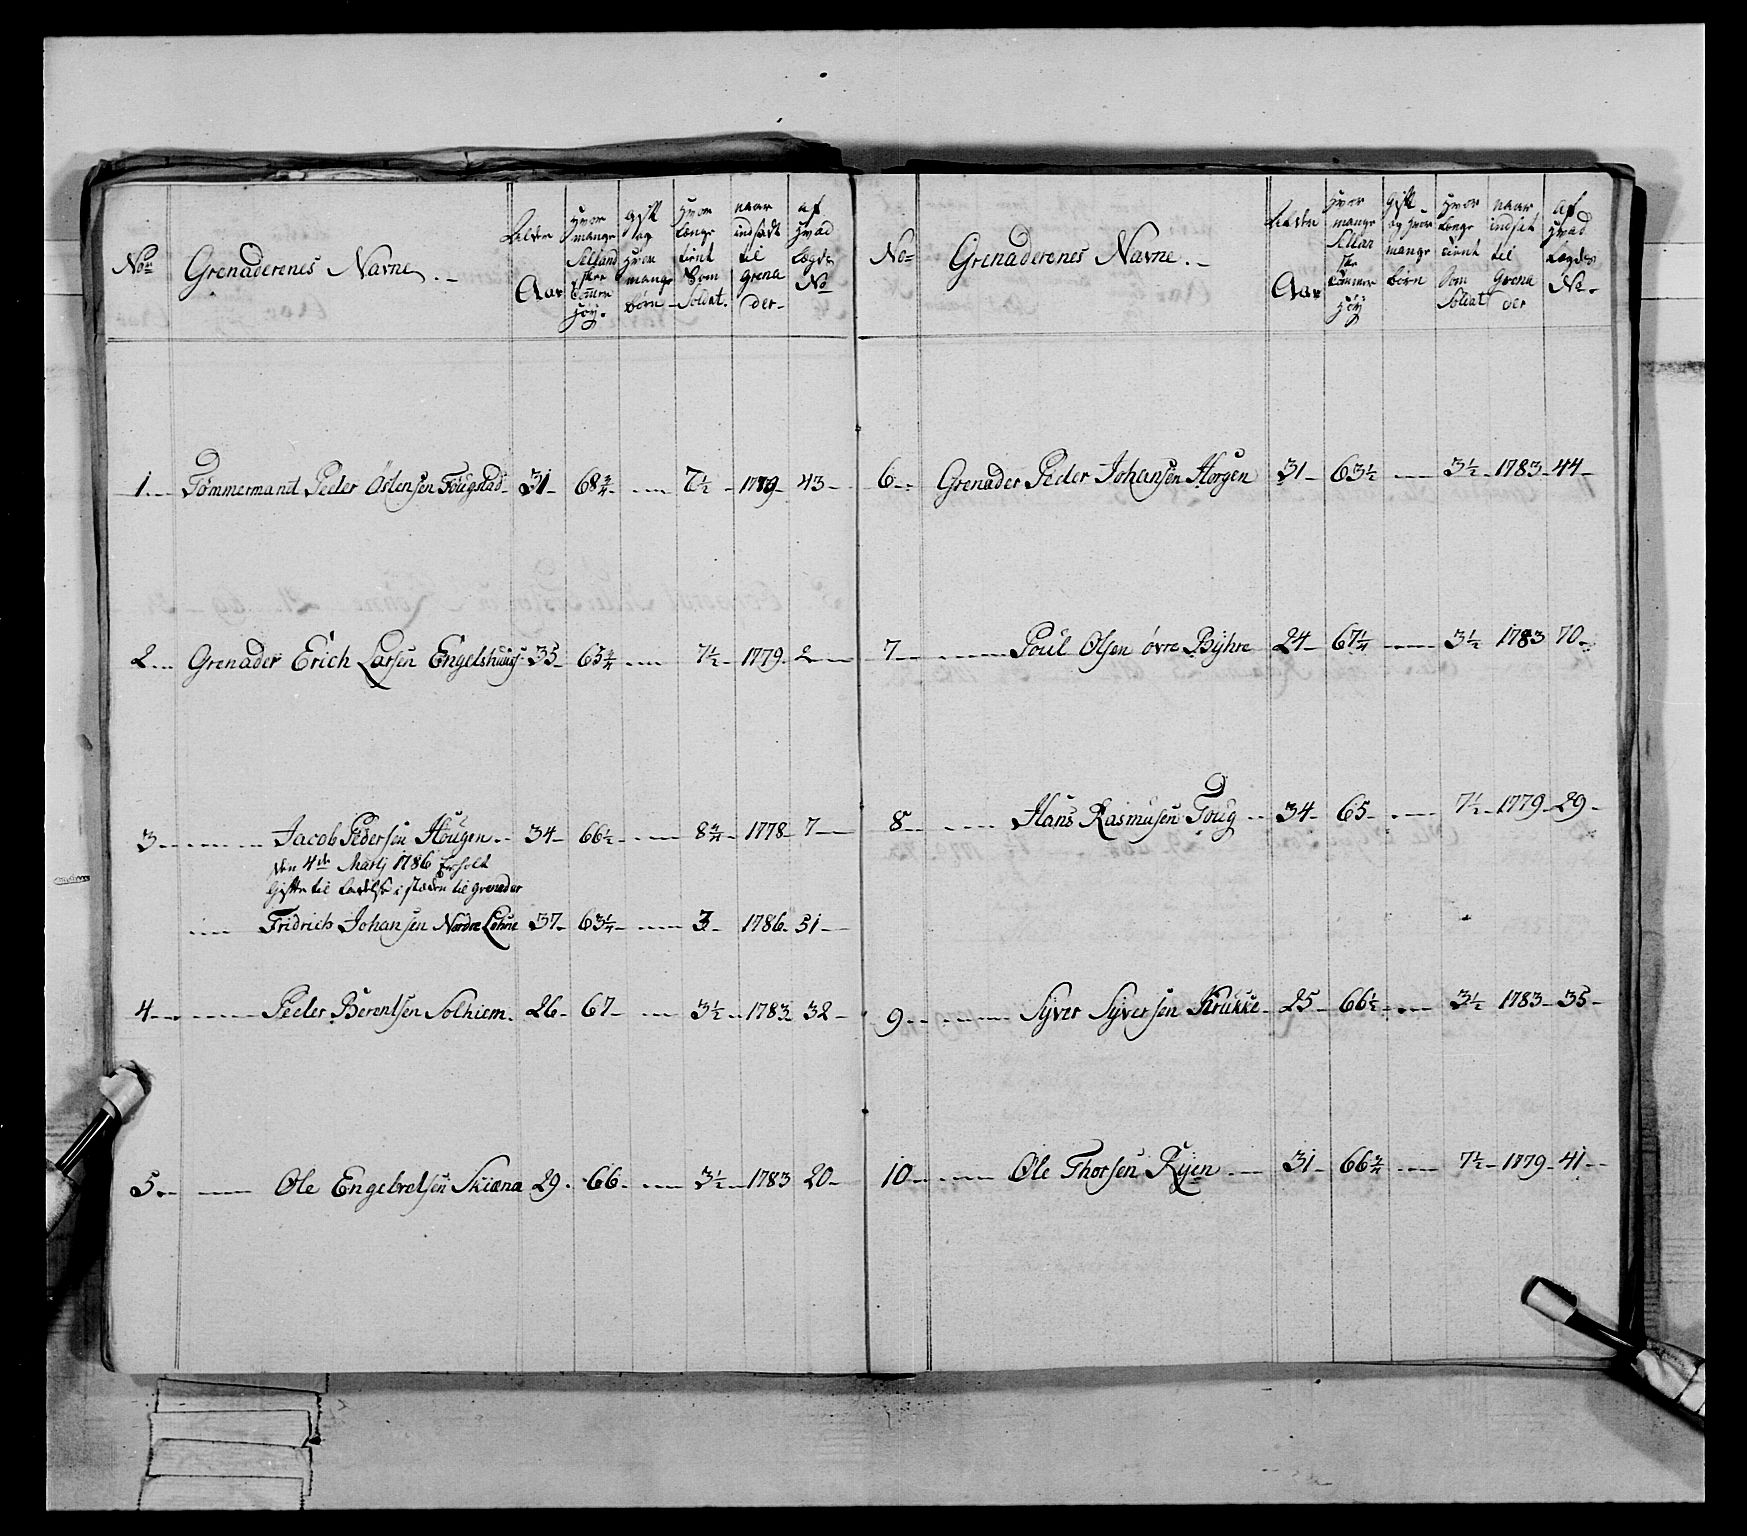 No
Grenaderenes Navne.
Alder
Aar
Hvor
mange
Sellands
ske
tommer
höy.
gift
og
hvor
mange
börn
Hvor
længe
tient
Som
Soldat.
naar
indsadt
til
Grena
der
af
hvad
Lægds
No
1. Tømmermand Peder Östensen Fougstad 31 68 3/4 7 1/2 1779 43
2. Grenader Erich Larsen Engelshuus 35 65 3/4 7 1/2 1779 2
3. Jacob Pedersen Hougen 34 66 1/2 8 3/4 1778 7
den 4de Martj 1786 Erholt
til i stæden til grenader
Fridrich Johansen Nordre Lohne 37 63 1/4 3 1786 51
4. Peder Berentsen Solhiem. 26 67 3 1/2 1783 32
5. Ole Engebretsen Skiæna 29. 66. 3 1/2 1783 20
No
Grenaderenes Navne.
Alder
Aar
Hvor
mange
Sellan
ske
tommer
höy
gift
og hvor
mange
börn
Hvor
længe
tient
som
Soldat
naar
indsat
til
Grena
der
af
hvad
Lægds
No.
6. Grenader Peder Johansen Horgen 31 63 1/2 3 1/2 1783 44
7 Poul Olsen övre Byhre 24 67 1/4 3 1/2 1783 70
8 Hans Rasmusen Foug 34 65 7 1/2 1779 29
9 Syver Syversen Krukke 25 66 1/2 3 1/2 1783 35
10 Ole Thorsen Ryen 31 66 3/4 7 1/2 1779 41